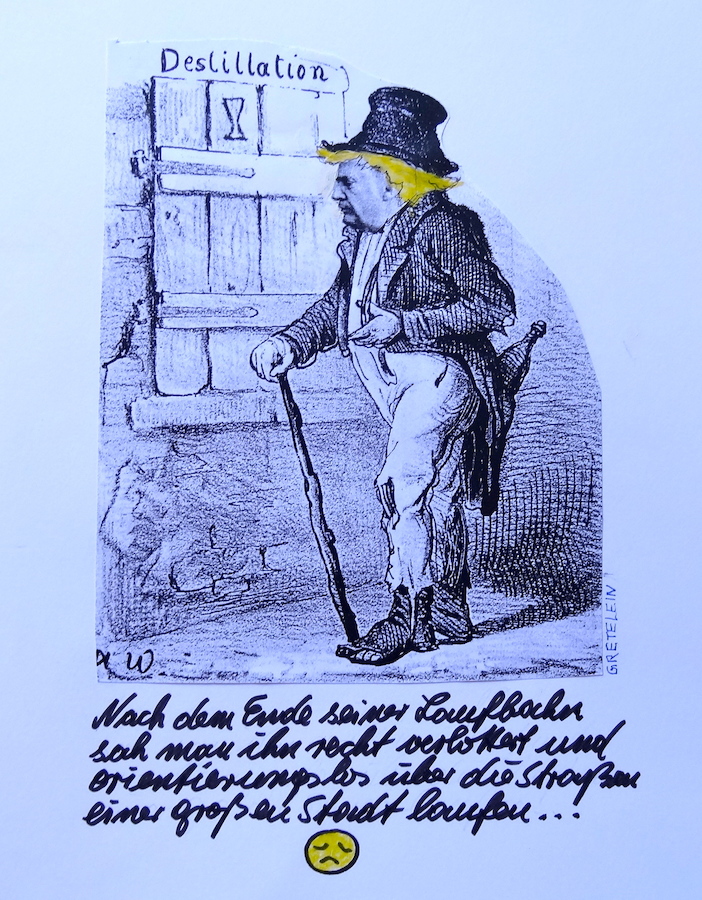 Destillation
W
GRETELEIN
Nach dem Ende seiner Laufbahn
sah man ihn recht verlottert und
orientierungslos über die Straßen
einer großen Stadt laufen...